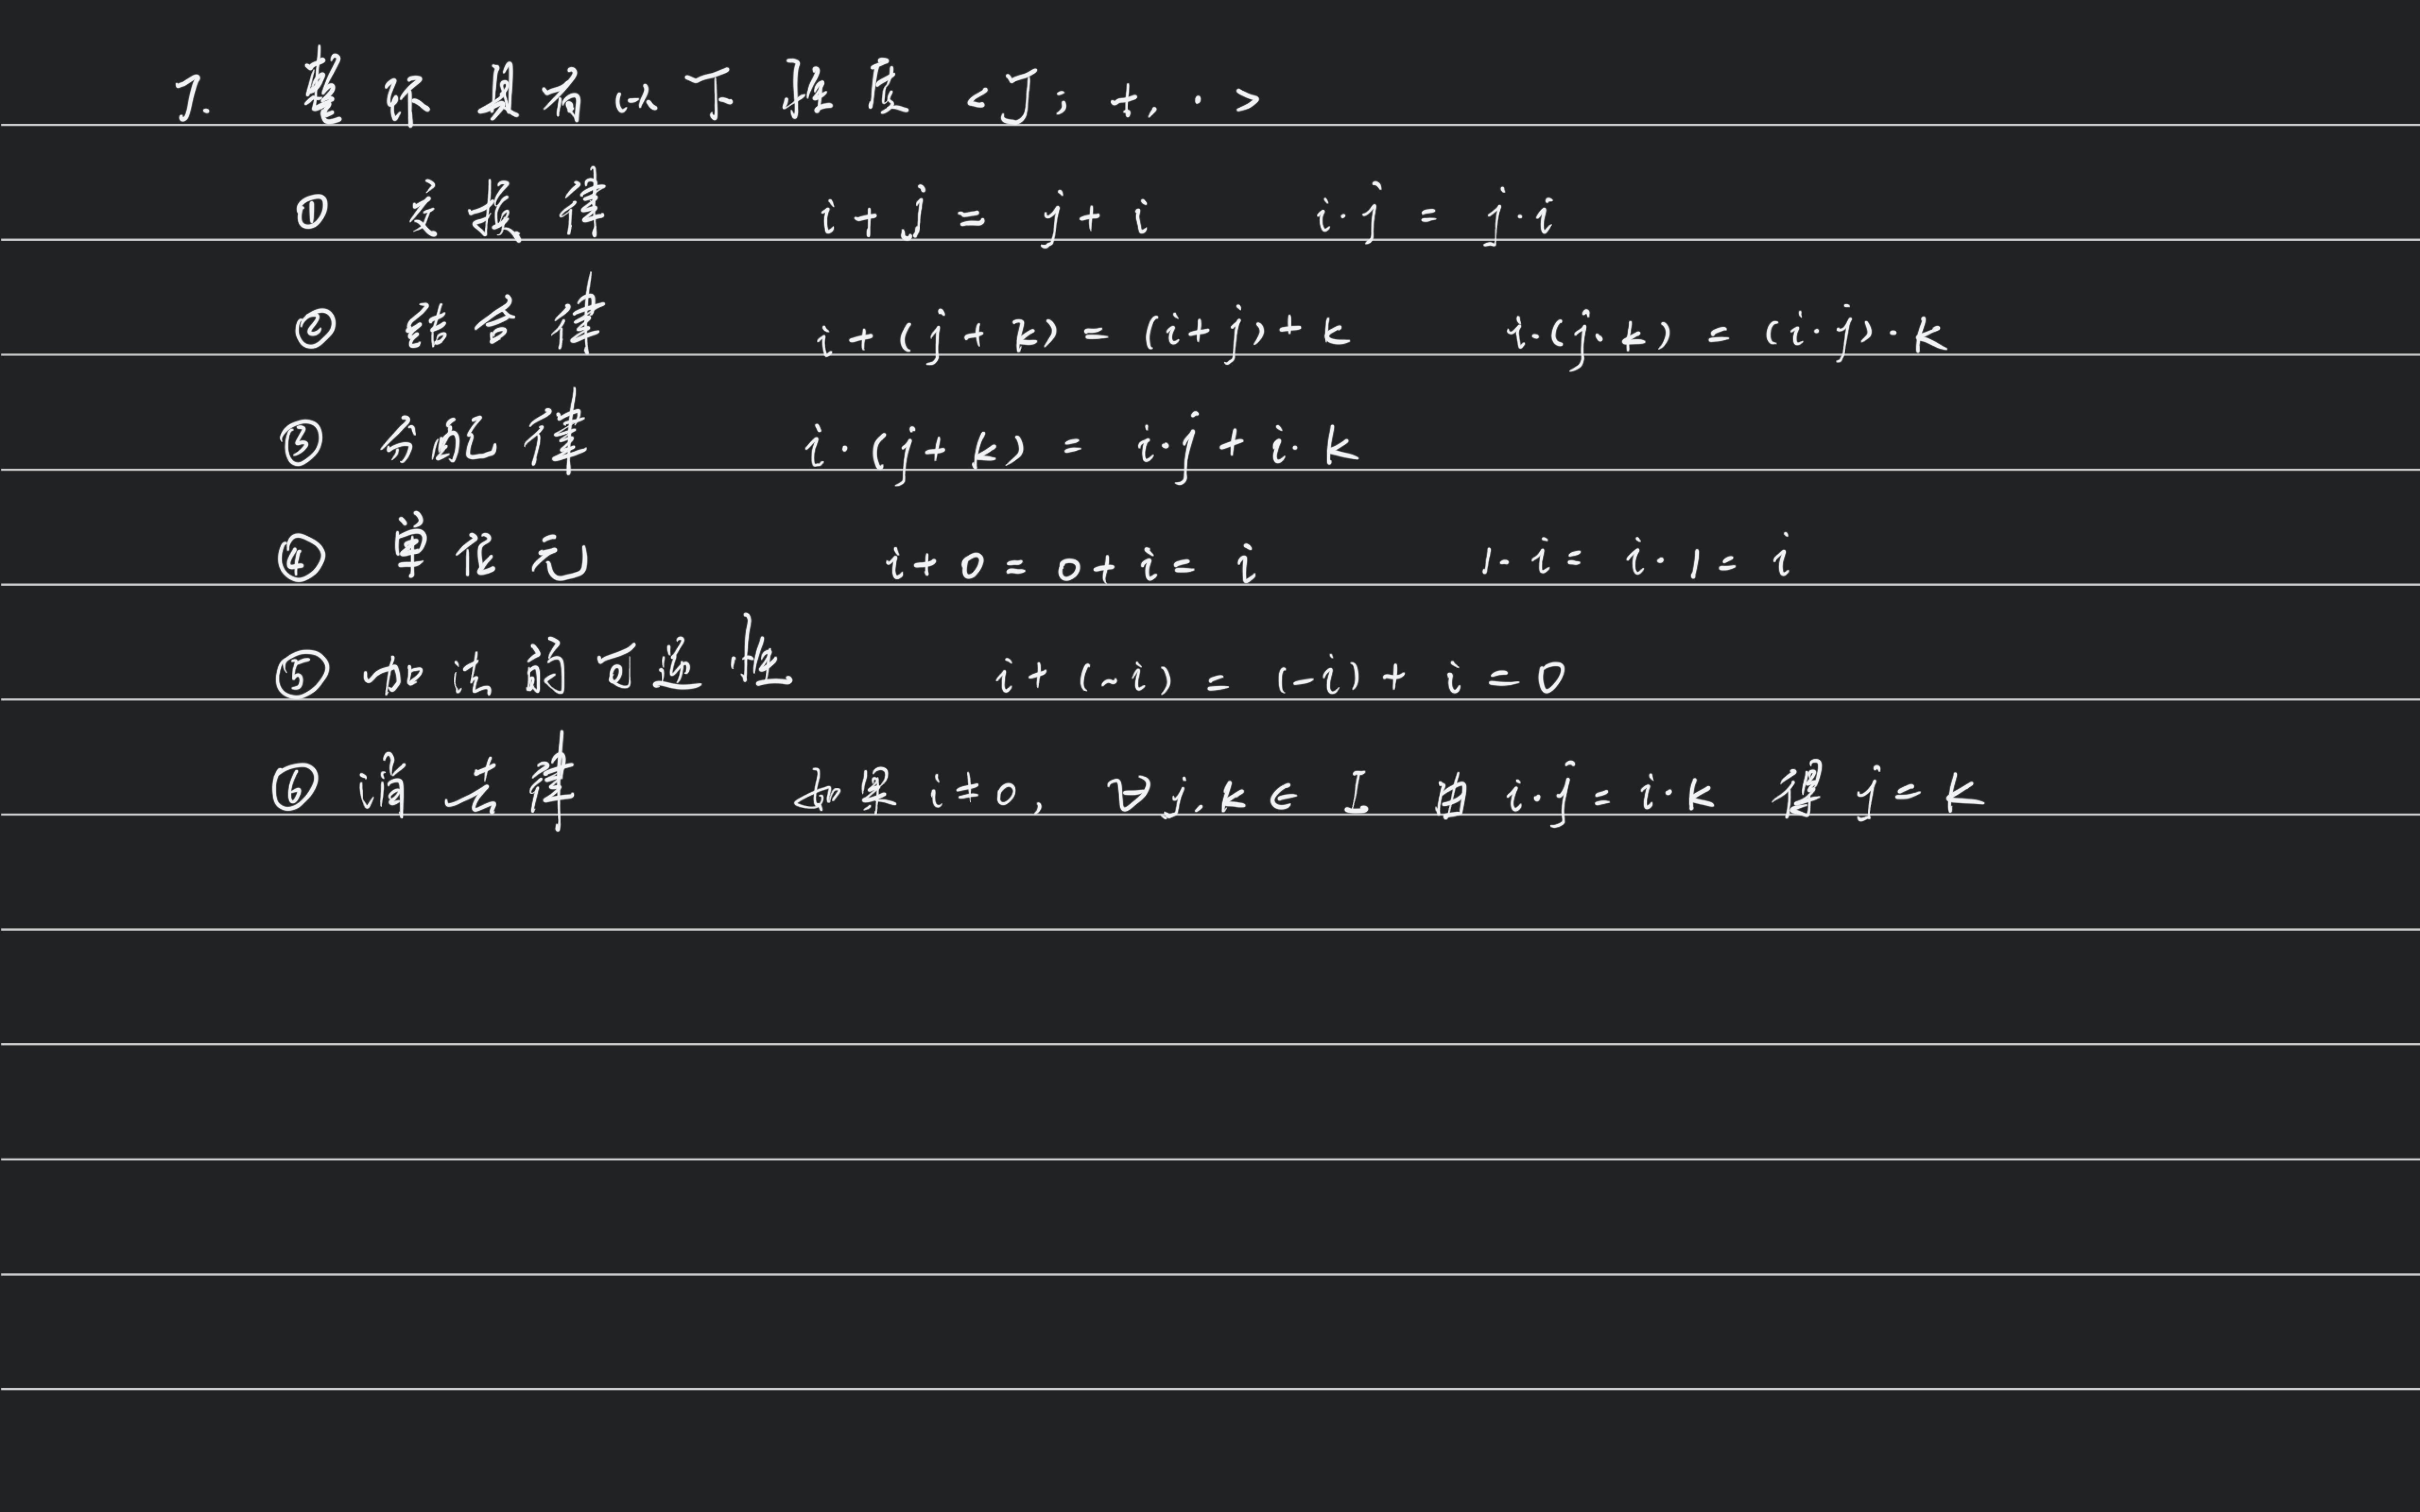 7. 整环具有以下性质 <J; +, · >
① 交换律 i + j = j + i i·j = j·i
② 结合律 i + (j + k) = (i + j) + k i·(j·k) = (i·j)·k
③ 分配律 i·(j + k) = i·j + i·k
④ 单位元 i + 0 = 0 + i = i 1·i = i·1 = i
⑤ 加法的可逆性 i + (-i) = (-i) + i = 0
⑥ 消去律 如果 i ≠ 0, ∀ j, k ∈ I 由 i·j = i·k 得 j = k